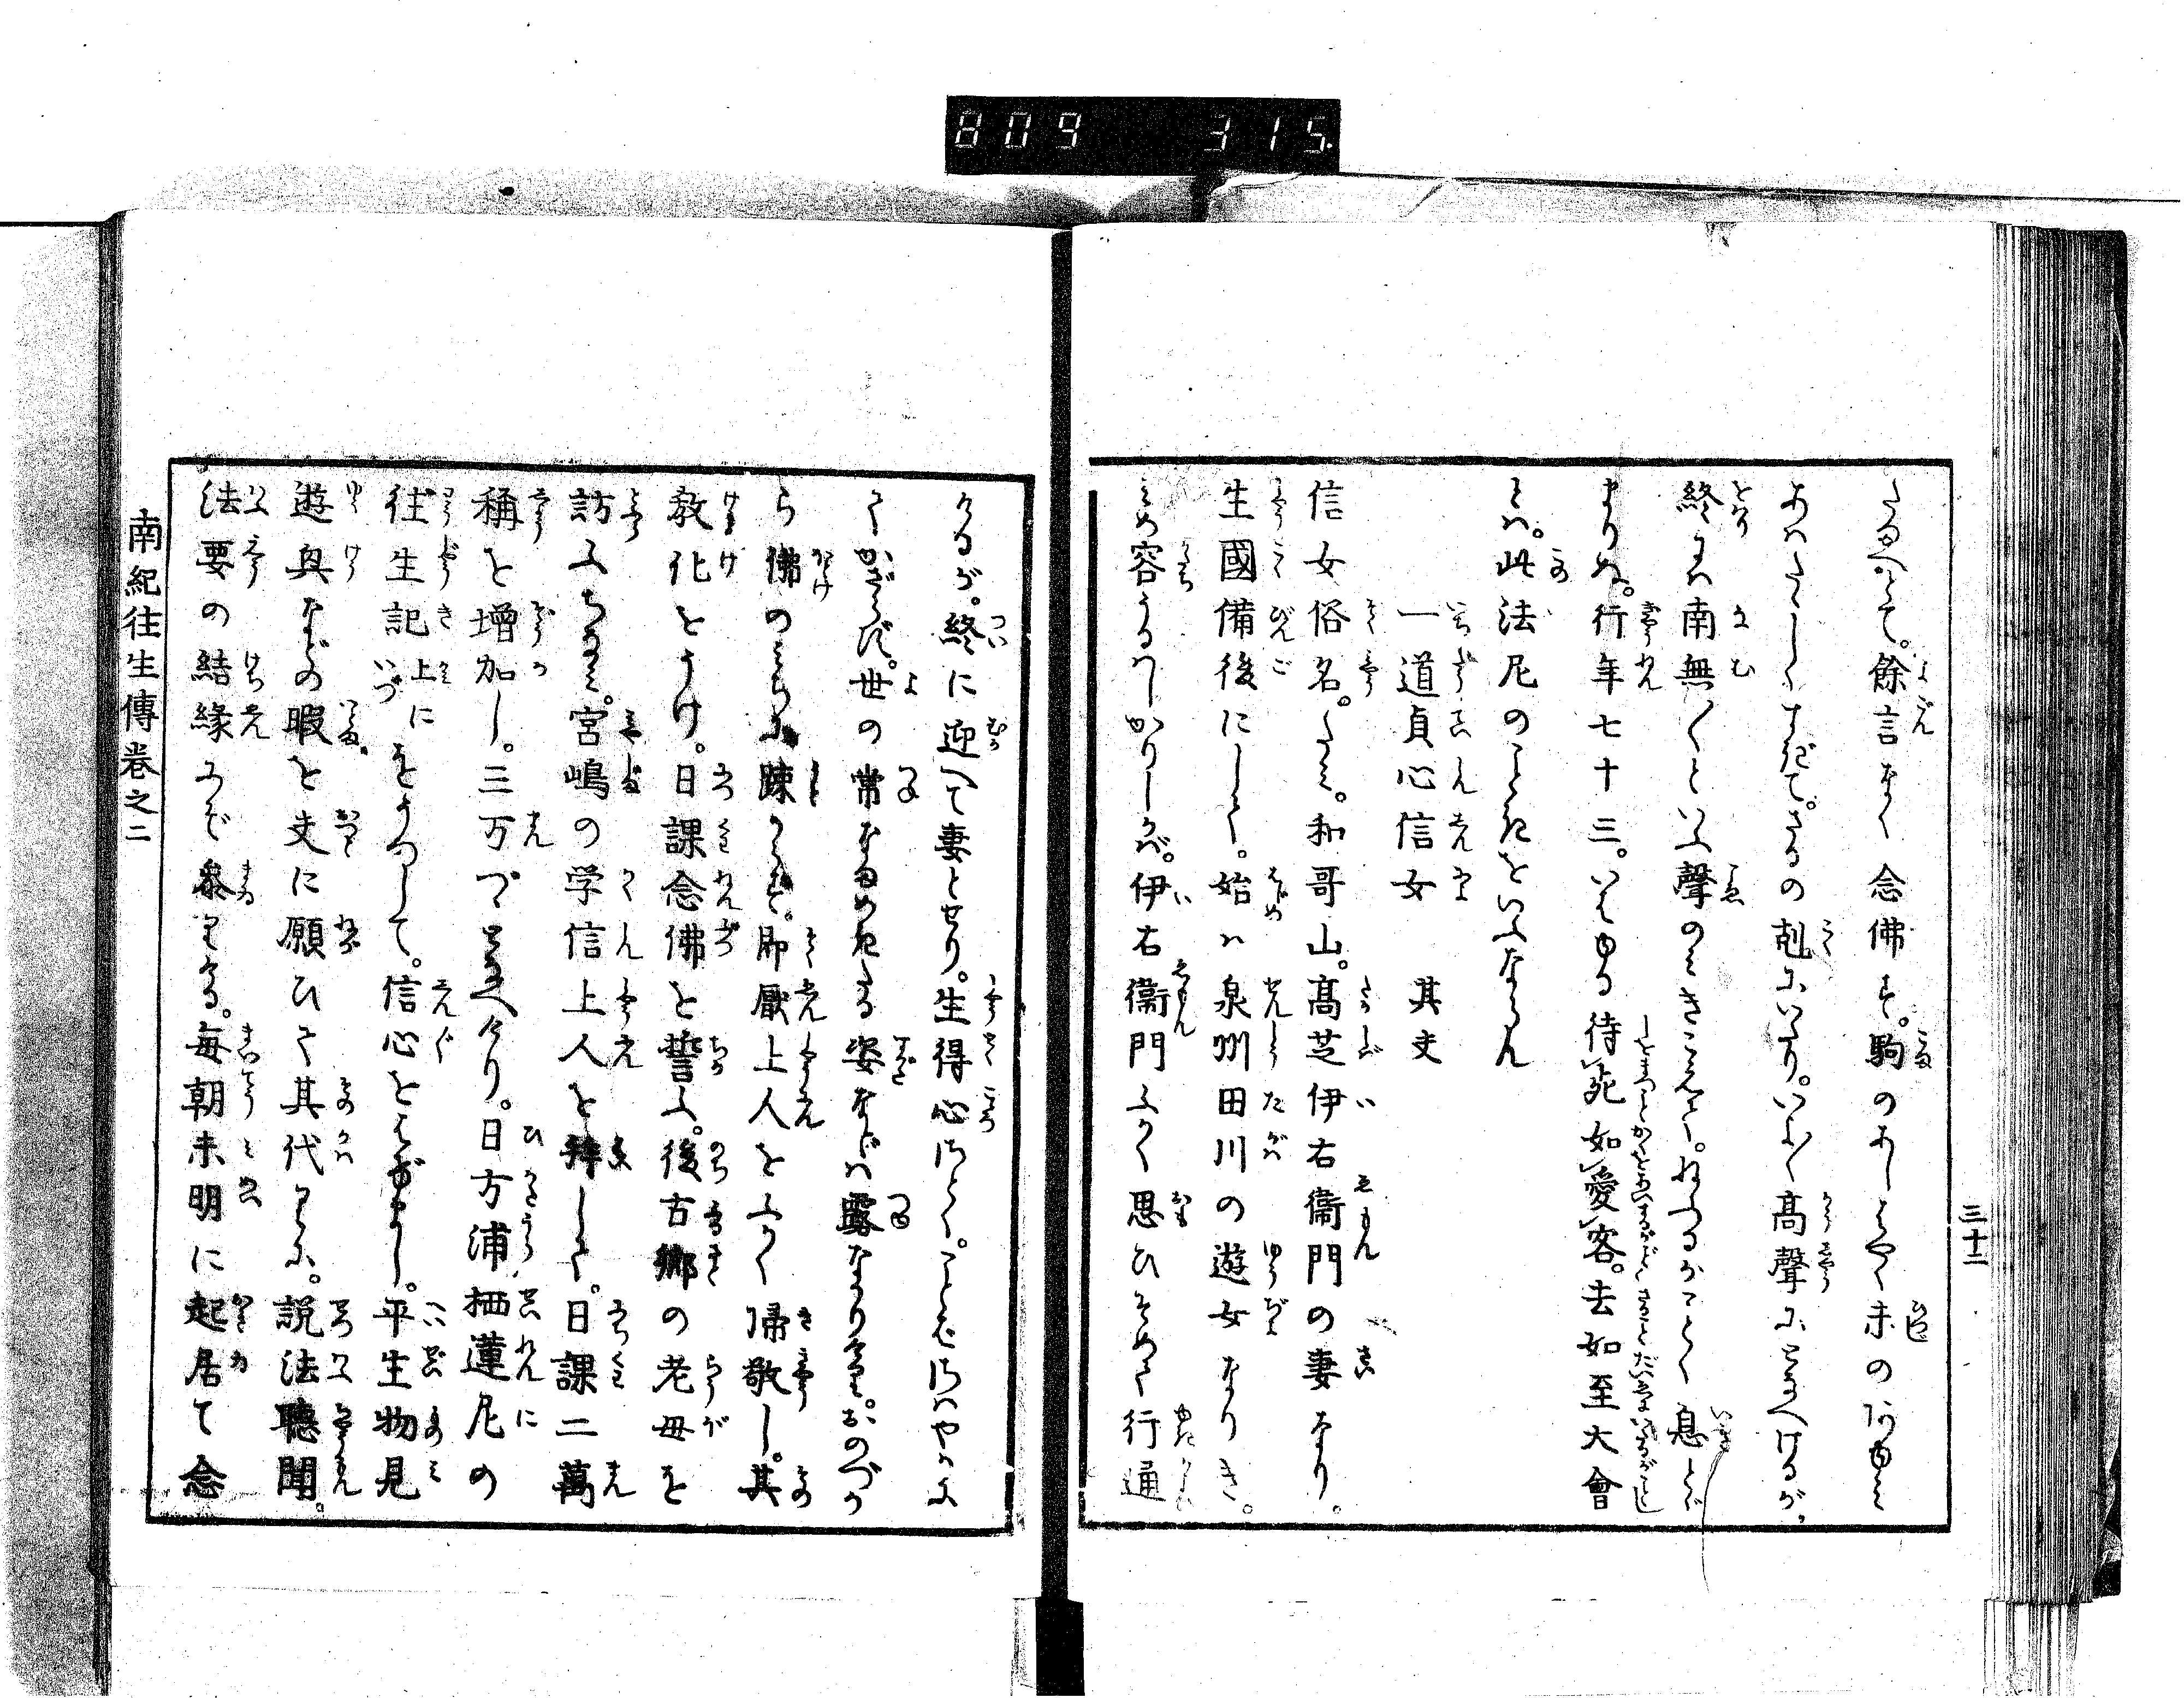 809 315
三十二
たまへとて。餘言なく念佛す。駒のあしはやく未のあゆみ
あはたゝしくすぎて。さるの剋にいたり。いよ〳〵高聲にとなへけるが。
終には南無〳〵といふ聲のみきこえて。ねふるかことく息とゞ
まりぬ。行年七十三。いはゆる待死如愛客。去如至大會
とは。此法尼のことをいふならん
一道貞心信女 其丈
信女俗名。たみ。和哥山。髙芝伊右衞門の妻なり。
生國備後にして。始ハ泉州田川の遊女なりき。
みめ容うるハしかりしかば。伊右衞門ふかく思ひそめて行通
けるが。終に迎へて妻とせり。生得心
くかざらず。世の常なまめきたる姿などハ露なかりき。おのづか
ら佛のみちに疎からず。即厭上人をふかく帰敬し。其
教化をうけ。日課念佛を誓ふ。後古郷の老母を
訪ふちなみ。宮嶋の学信上人を拜して。日課二萬
稱を増加し。三万づゝとなへけり。日方浦栖蓮尼の
往生記上にをうつして。信心をはげまし。平生物見
遊興などの暇を丈に願ひて其代りに。説法聽聞。
法要の結縁にぞ参りける。毎朝未明に起居て念
南紀往生傳卷之二